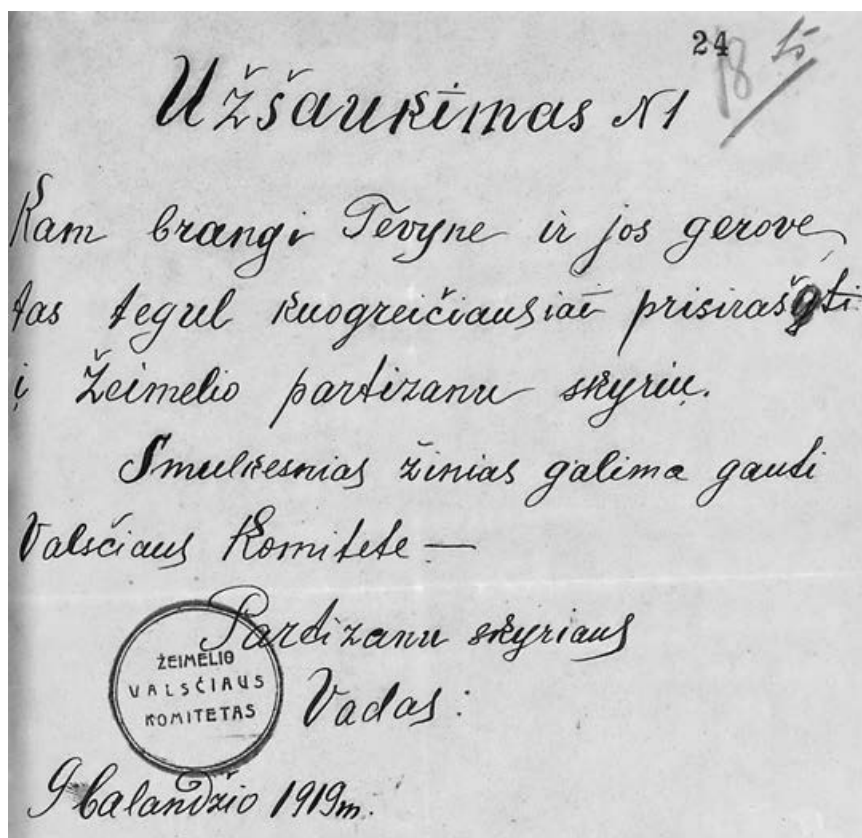 24
18 15
Užšaukimas N1
Kam brangi Tėvyne ir jos gerove,
tas tegul kuogreičiausiai prisirašyti
į Žeimelio partizanu skyrių.
Smulkesnias žinias galima gauti
Valsčiaus Komitete —
Partizanu skyriaus
ŽEIMELIO
VALSČIAUS
KOMITETAS
Vadas:
9 Balandžio 1919 m.